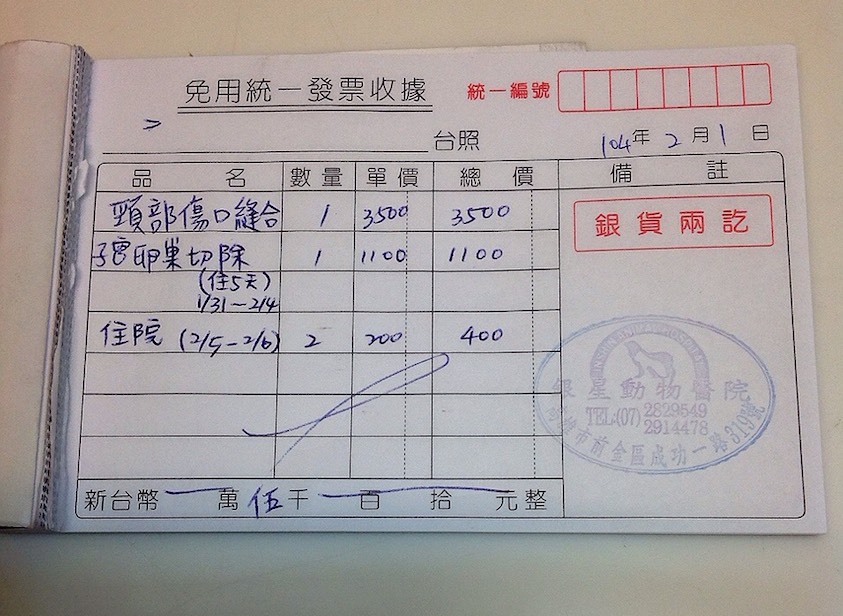 免用統一發票收據
統一編號
台照
104年 2月1日
品名 數量 單價 總價 備註
頸部傷口縫合 1 3500 3500
銀貨兩訖
子宮卵巢切除 1 1100 1100
(住5天)
1/31~2/4
住院 (2/5-2/6) 2 200 400
銀星動物醫院
TEL:(07) 2829549
2914478
市前金區成功一路319號
新台幣 萬伍千 百 拾 元整